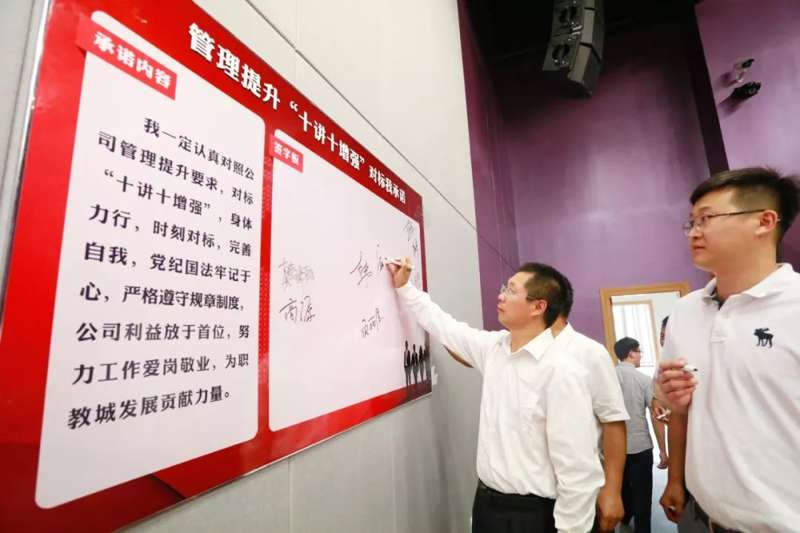 管理提升“十讲十增强”对标我承诺
承诺内容
我一定认真对照公
司管理提升要求，对标
“十讲十增强”，身体
力行，时刻对标，完善
自我，党纪国法牢记于
心，严格遵守规章制度，
公司利益放于首位，努
力工作爱岗敬业，为职
教城发展贡献力量。
签字板
高源